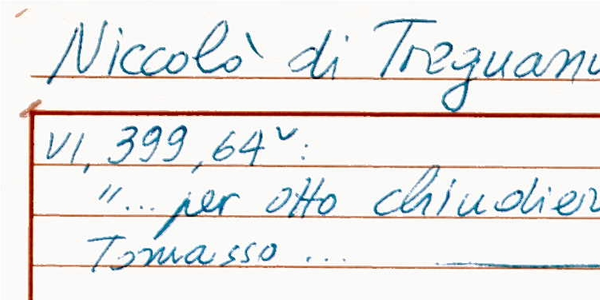 Niccolò di Treguanu
VI, 399, 64v:
"... per otto chiudier
Tomasso ...